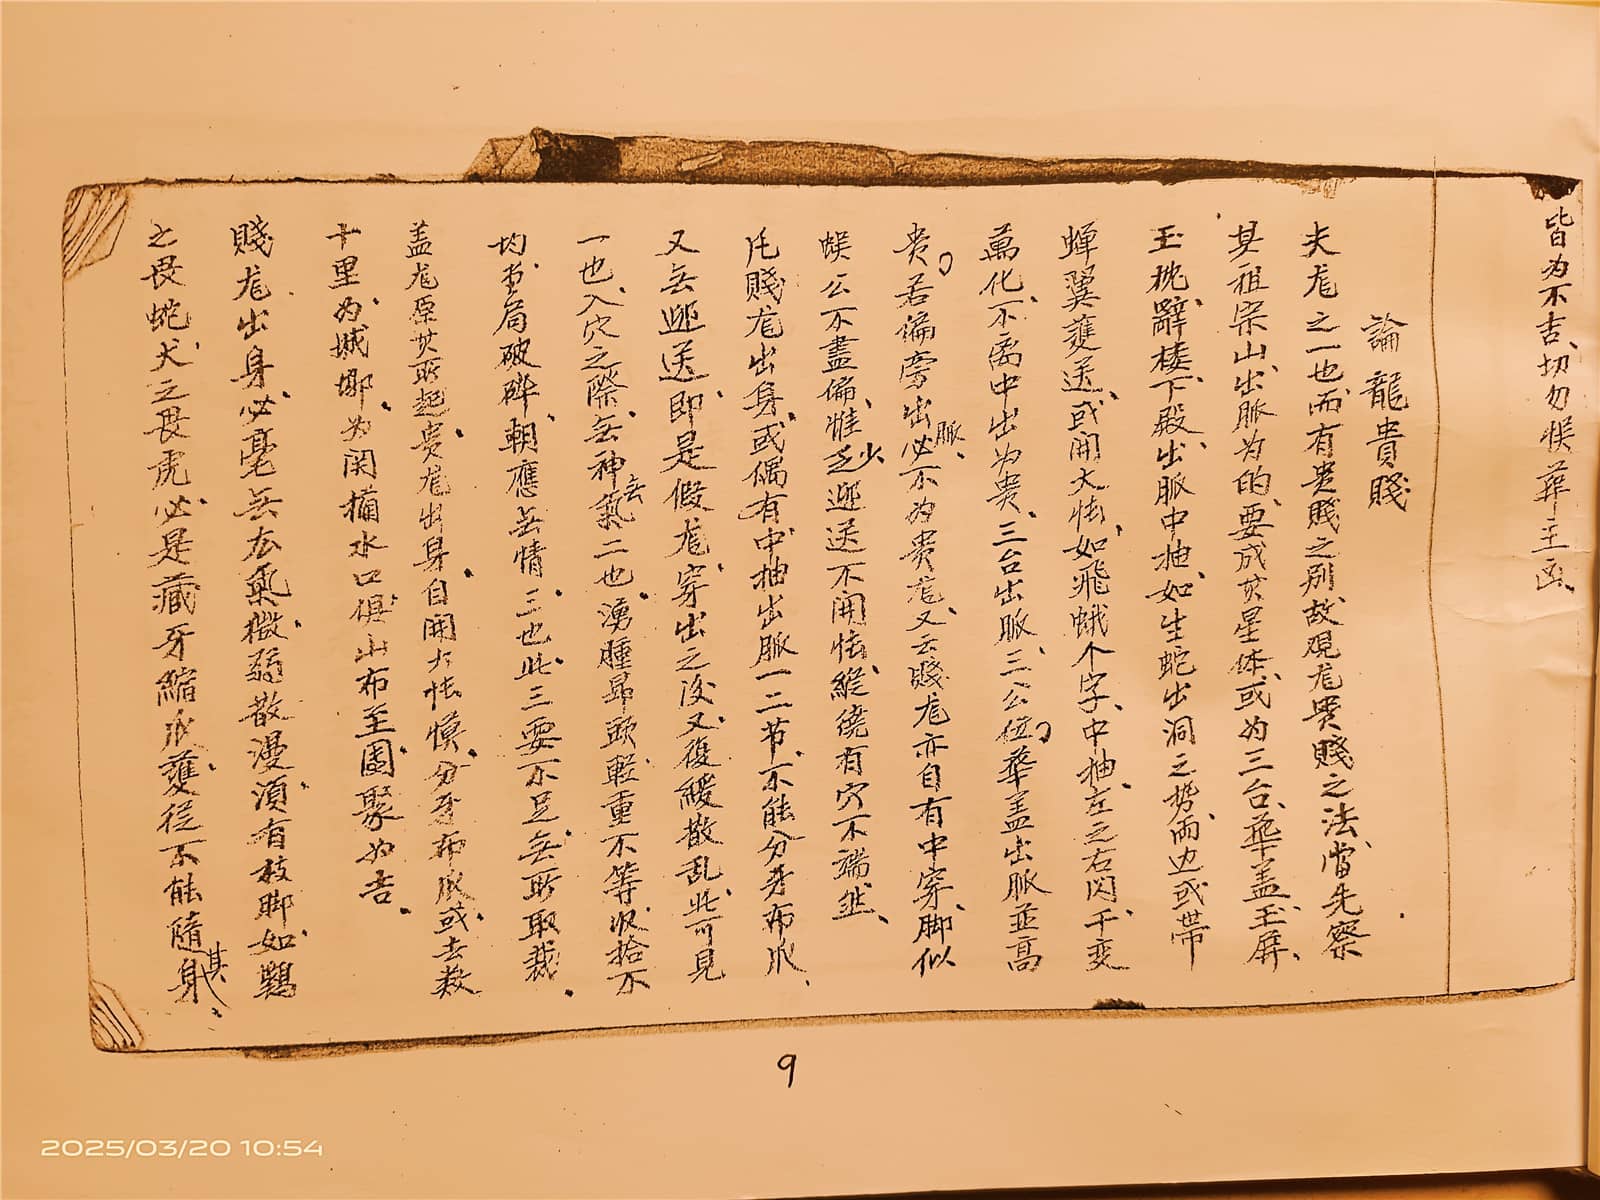 皆为不吉、切勿悞葬主凶、
論龍貴賤
夫龙之一也、而有贵賤之别、故观龙贵賤之法、當先察
其祖宗山、出脈为的、要成其星体、或为三台、華盖、玉屏、
玉枕、辭楼下殿、出脈中抽、如生蛇出洞之势、两边或带
蝉翼護送、或開大帳、如飛蛾个字、中抽、左之右闪、千变
萬化、不离中出为贵、三台出脈、三公位、華盖出脈並高
贵、若偏旁出脈、必不为贵龙、又云賤龙亦自有中穿、脚似
蜈公不盡偏、惟乏少迎送不開帳、縱饶有穴不端然、
凡賤龙出身、或偶有中抽出脈一二节、不能分牙布爪、
又無迎送、即是假龙、穿出之后、又復緩散乱、此可見
一也、入穴之際、無神無氣二也、湧腫昂頭、輕重不等、收拾不
均、堂局破碎、朝應無情、三也、此三要不足、無所取裁、
盖龙原其所起、贵龙出身、自開大帳幙、分牙布爪、或去数
十里为城郭、为関攔水口、俱山布至、團聚为吉、
賤龙出身、必毫無龙氣、微弱散漫、須有枝脚、如鷄
之畏蛇、犬之畏虎、必是藏牙縮爪、護從不能隨其身、
9
2025/03/20 10:54